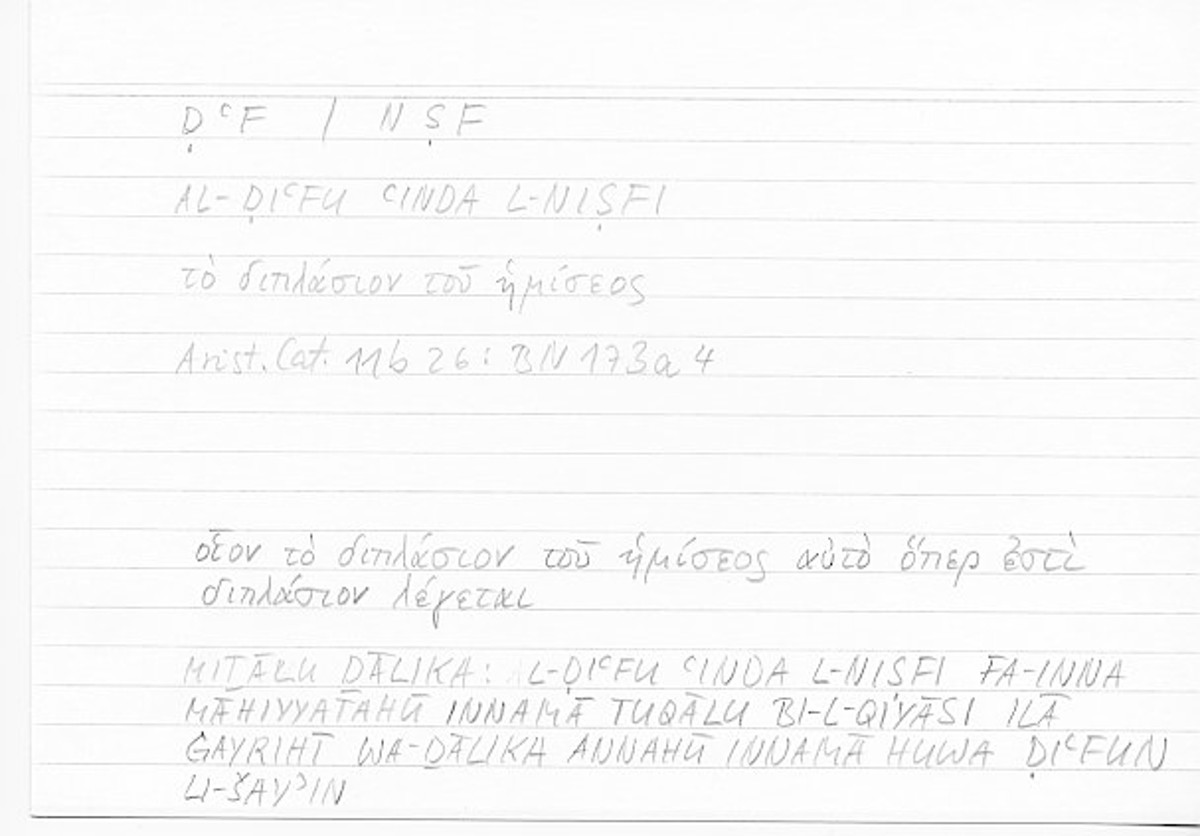 ḌʿF / NṢF
AL-ḌIʿFU ʿINDA L-NIṢFI
τὸ διπλάσιον τοῦ ἡμίσεος
Arist. Cat. 11b 26 : BN 173a 4
οἷον τὸ διπλάσιον τοῦ ἡμίσεος αὐτὸ ὅπερ ἐστὶ
διπλάσιον λέγεται
MIṮĀLU ḎĀLIKA: AL-ḌIʿFU ʿINDA L-NISFI FA-INNA
MĀHIYYATAHŪ INNAMĀ TUQĀLU BI-L-QIYĀSI ILĀ
ĠAYRIHĪ WA-ḎĀLIKA ANNAHŪ INNAMĀ HUWA ḌIʿFUN
LI-ŠAYʾIN